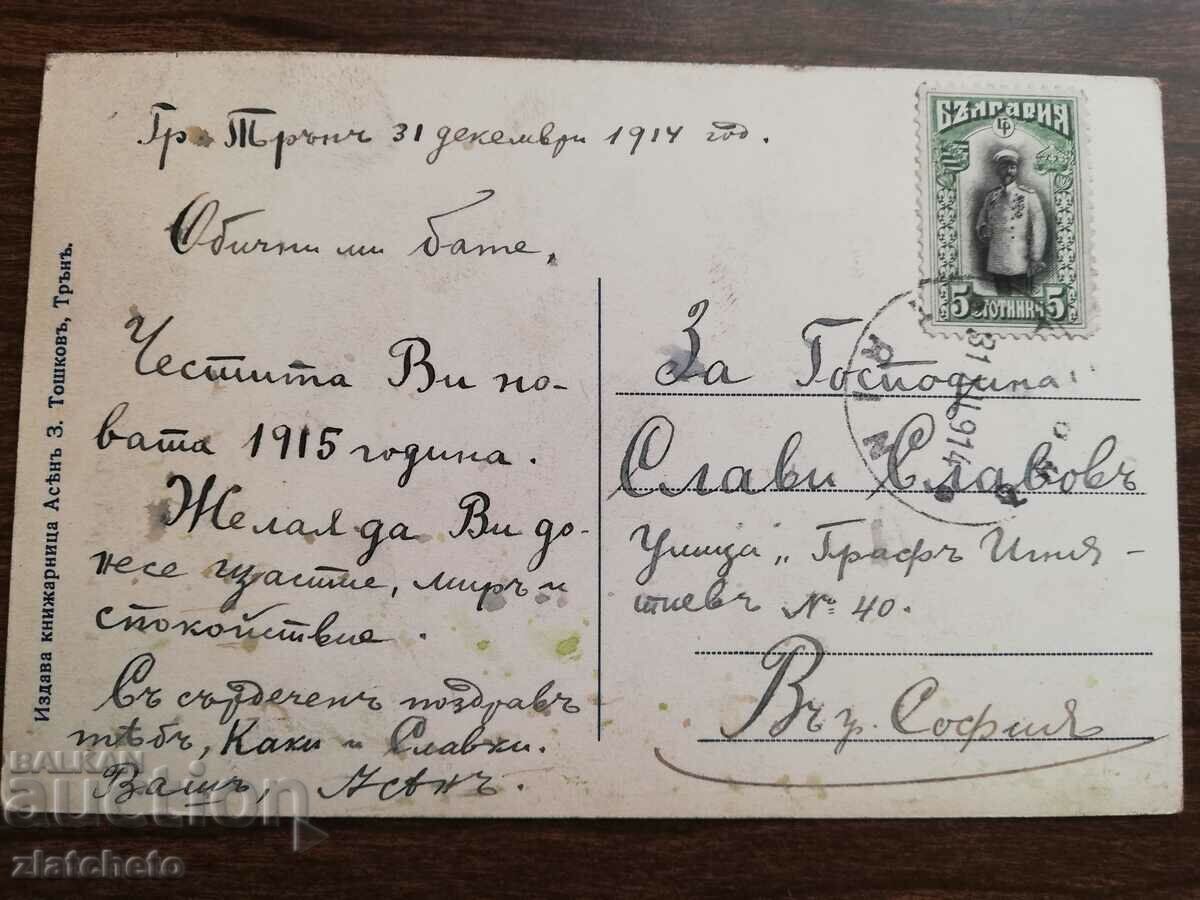 Гр. Трънъ 31 декември 1914 год.
Обични ми бате,
Честита Ви но-
вата 1915 година.
Желая да Ви до-
несе щастие, миръ и
спокойствие.
Съ сърдеченъ поздравъ
тѣбъ, Каки и Славки.
Вашъ, Асѣнъ.
Издава книжарница Асѣнъ З. Тошковъ, Трънъ.
БЪЛГАРИЯ
5 СТОТИНКИ 5
31 XII 914
За Господина
Слави Славовъ
Улица „Графъ Игня-
тиевъ № 40.
Въ гр. София
BALKAN
auction
zlatcheto